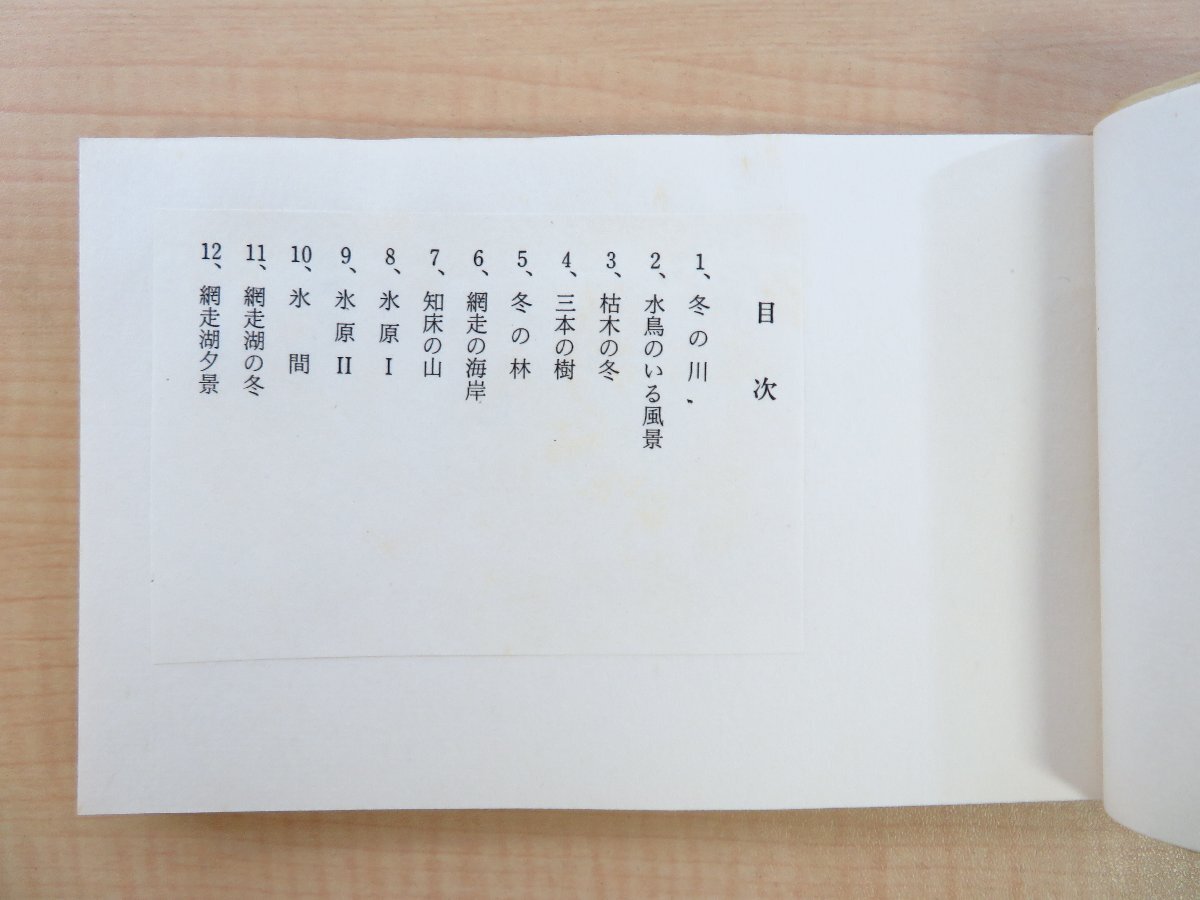 目次
1、冬の川、
2、水鳥のいる風景
3、枯木の冬
4、三本の樹
5、冬の林
6、網走の海岸
7、知床の山
8、氷原I
9、氷原II
10、氷間
11、網走湖の冬
12、網走湖夕景